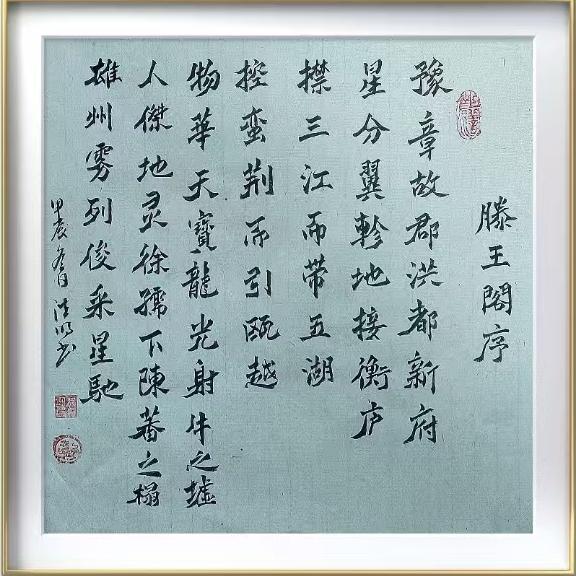 滕王閣序
豫章故郡洪都新府
星分翼軫地接衡庐
襟三江而带五湖
控蛮荆而引瓯越
物華天寶龍光射牛之墟
人傑地灵徐孺下陳蕃之榻
雄州雾列俊采星馳
甲辰书